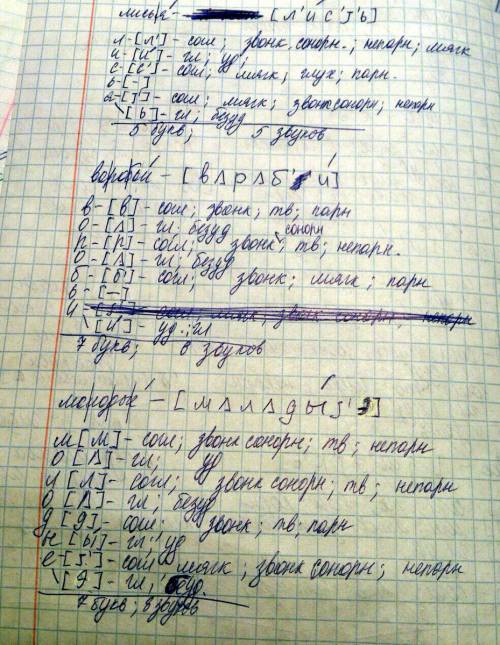 лисья - [л'и́с'j'ь]
л-[л']- согл; звонк. сонорн.; непарн; мягк
и-[и]- гл; уд;
с-[с']- согл; мягк; глух; парн.
ь-[-]
я-[j']- согл; мягк; звонк сонорн; непарн
\[ь]- гл; безуд
5 букв; 5 звуков
воробьи - [вΛрΛб'и́]
в-[в]- согл; звонк; тв; парн
о-[Λ]- гл; безуд
р-[р]- согл; звонк сонорн; тв; непарн.
о-[Λ]- гл; безуд
б-[б']- согл; звонк; мягк; парн
ь-[-]
и-
\[и]- уд.; гл
7 букв; 6 звуков
молодые - [мΛлΛды́j'э]
м [м]- согл; звонк сонорн; тв; непарн
о [Λ]- гл; уд
л [л]- согл; звонк сонорн; тв; непарн
о [Λ]- гл; безуд
д [д]- согл; звонк; тв; парн
ы [ы]- гл; уд
е-[j']- согл мягк; звонк сонорн; непарн
\[э]- гл;
7 букв; 8 звуков